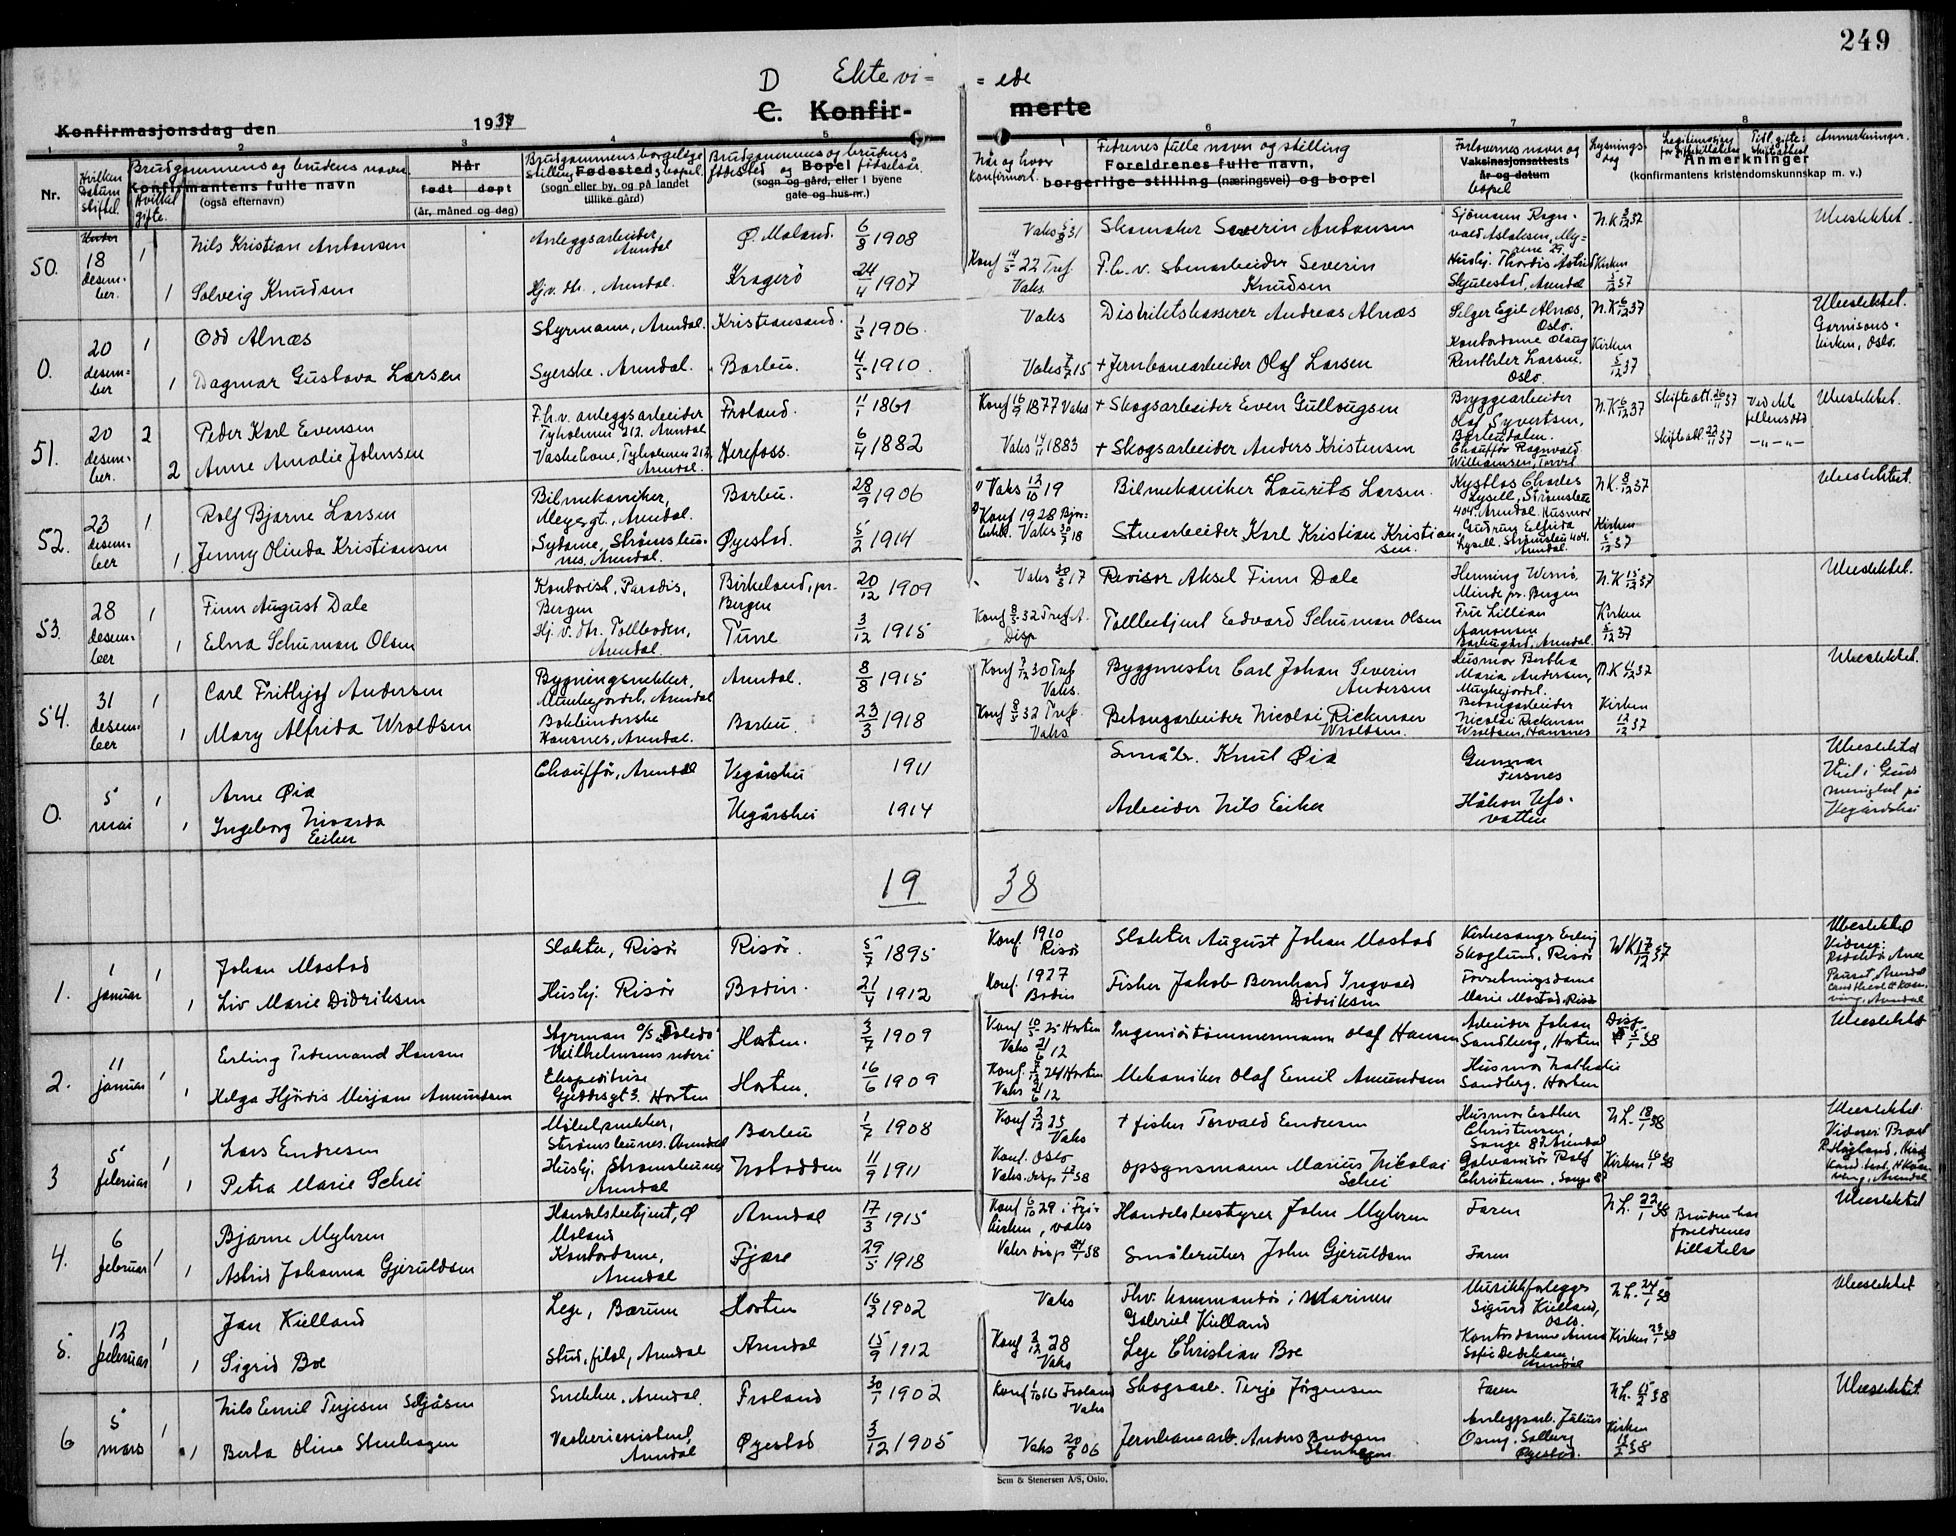 249
D Ektevi= =ede
C. Konfir- merte
Konfirmasjonsdag den 1937
1 2 3 4 5 6 7 8
Nr.
Hvilken Datum skiftel.
Hvilket gifte.
Brudgommens og brudens navn
Konfirmantens fulle navn
(også efternavn)
Når
født døpt
(år, måned og dag)
Brudgommens borgelige stilling og bopel.
Fødested
(sogn eller by, og på landet
tillike gård)
Brudgommens og brudens
fødested og fødselsår.
Bopel
(sogn og gård, eller i byene
gate og hus-nr.)
Når og hvor konfirmert.
Fedrenes fulle navn og stilling
Foreldrenes fulle navn,
borgerlige stilling (næringsvei) og bopel
Forlovernes navn og
Vaksinasjonsattests
år og datum
bopel
Lysnings-
dag
Tidl. gifte:
Skifteattest
Anmerkninger.
Anmerkninger
(konfirmantens kristendomskunnskap m. v.)
50. 18 desem-ber. 1 Nils Kristian Antonsen Anleggsarbeider, Arendal Ø. Moland. 6/8 1908 Vaks 3/8 31 Skomaker Severin Antonsen Sjömann Ragn-vald Aslaksen, My=rene 29. N.K 3/12 37 Ubeslektet.
1 Solveig Knudsen Hj.v. th., Arendal. Kragerö 24/4 1907 Konf 14/5 22 Tref. Vaks. F.h.v. stenarbeider Severin Knudsen Hushj. Thordis Astrid Skjulestad, Arendal Kirken 5/12 37
0. 20 desem-ber 1 Odd Alnæs Styrmann, Arendal. Kristiansand. 1/5 1906. Vaks Distriktskasserer Andreas Alnæs Selger Egil Alnæs, Oslo. N.K 6/12 37 Ubeslektet. Garnisons-kirken, Oslo.
1 Dagmar Gustava Larsen Syerske. Arendal. Barbu. 4/5 1910. Vaks 7/7 15 + Jernbanearbeider Olaf Larsen Kontordame Olaug Larsen. Oslo. Kirken 5/12 37
51. 20 desem-ber. 2 Peder Karl Evensen F.h.v. anleggsarbeider Tyholmen 212, Arendal Froland. 11/1 1861 Konf 16/9 1877 Vaks + Skogsarbeider Even Gullougsen Bryggearbeider Olaf Syvertsen, Barbudalen. N.K 6/12 37 Skifteatt. 26/11 37 Ved dødsfall Ubeslektet.
2 Anne Amalie Johnsen Vaskekone, Tyholmen 212, Arendal. Herefoss. 6/4 1882 Vaks 14/11 1883 + Skogsarbeider Anders Kristensen Chauffør Ragnvald Williamsen, Torvet Skifteatt. 22/11 37 -"- -"-
52. 23 desem-ber 1 Rolf Bjarne Larsen Bilmekaniker, Meyesgt., Arendal. Barbu. 28/9 1906 Vaks 12/10 19 Bilmekaniker Laurits Larsen. Kystlos Charles Lysell, Strömsbu 404. Arendal. N.K 8/12 37 Ubeslektet.
1 Jenny Olinda Kristiansen Sydame, Strømsbu-nes. Arendal. Øyestad. 5/2 1914 Konf 1928 Vaks 30/7 18 Stuearbeider Karl Kristian Kristian-sen. Husmor Gudrun Elfrida Lysell. Strømsbu 404. Arendal Kirken 5/12 37
53. 28 desem-ber 1 Finn August Dale Kontorist, Paradis, Bergen Birkeland, pr. Bergen 20/12 1909 Vaks 30/5 17 Revisor Aksel Finn Dale Henning Minde pr. Bergen N.K 15/12 37 Ubeslektet.
1 Elna Schuman Olsen Hj. v. th. Tollboden, Arendal. Tune 3/12 1915 Konf 8/5 32 Tref. Disp Tollbetjent Edvard Schuman Olsen Fru Lillian Aanonsen Barbugård, Arendal. Kirken 5/12 37
54. 31 desem-ber 1 Carl Frithjof Andersen Bygningsnekker, Munkejordet, Arendal Arendal. 8/8 1915 Konf 7/12 30 Tref Vaks. Byggmester Carl Johan Severin Andersen Husmor Bertha Maria Andersen, Munkejordet. N.K 11/12 37 Ubeslektet.
1 Mary Alfrida Wroldsen Bokbinderske Hansnes, Arendal. Barbu. 23/3 1918 Konf 8/5 32 Tref. Vaks Betongarbeider Nicolai Rickman Wroldsen. Betongarbeider Nicolai Rickman Wroldsen, Hansnes Kirken 12/12 37
0. 5 mai 1 Arne Øia Chauffør, Arendal Vegårshei 1911 Småbr. Knut Øia Gunnar Fersnes Ubeslektet Viet i Guds menighet på Vegårdshei
1 Ingeborg Nivarda Eiker Vegårshei 1914 Arbeider Nils Eiker Håkon Ufs-vatten
19 38
1. 1 januar 1 Johan Mostad Slakter, Risør Risør. 5/7 1895 Konf. 1910 Risør Slakter August Johan Mostad Kirkesanger Erling Skoglund, Risør N.K 17/12 37 Ubeslektet Vidner: Redaktør Arne Arendal
1 Liv Marie Didriksen Hushj. Risør Bodin. 21/4 1912 Konf. 1927 Bodin Fisker Jakob Bernhard Ingvald Didriksen Forretningsdame Marie Mostad, Risør Arendal
2. 11 januar 1 Erling Ferdinand Hansen Styrman o/s "Toledo" Wilhelmsens rederi Horten. 3/7 1909 Konf 10/5 25 Horten Vaks 21/6 12 Ingeniørtömmermann Olaf Hansen Arbeider Johan Sandberg, Horten Disp. 5/1 38 Ubeslektet
1 Helga Hjördis Mirjam Amundsen Ekspeditrise Gjeddegt 3. Horten Horten. 16/6 1909 Konf. 5/12 24 Horten Vaks 21/6 12 Mekaniker Olaf Emil Amundsen Husmor Nathalie Sandberg. Horten
3 5 februar 1 Lars Endresen Möbelsnekker, Strömsbunes. Arendal Barbu 1/7 1908 Konf 2/12 23 Vaks + fisker Torvald Endresen Husmor Esther Christensen, Songe 87. Arendal N.L. 18/1 38 Ubeslektet. Vidner: Arendal
1 Petra Marie Schei Hushj. Strømsbunes Arendal Notodden 11/9 1911 Konf. Oslo Vaks. disp 17/1 38 Opsynsmann Marius Nikolai Schei Galvanisör Rolf Christensen, Songe 87 Kirken 16/1 38
4. 6 februar 1 Bjarne Myhren Handelsbetjent, Ø Moland Arendal 17/3 1915 Konf 6/10 29 i Fri-kirken, vaks Handelsbestyrer John Myhren Faren N.L. 22/1 38 Bruden har foreldrenes tillatelse Ubeslektet
1 Astrid Johanna Gjeruldsen Kontordame, Arendal Fjære 29/5 1918 Vaks disp 24/1 38 Småbruker John Gjeruldsen Faren
5. 12 februar 1 Jan Kielland Lege, Bærum Horten 16/2 1902 Vaks Fhv. kommandør i Marinen Gabriel Kielland Musikkforlegger Sigurd Kielland, Oslo. N.L. 24/1 38 Ubeslektet
1 Sigrid Boe Stud. filol, Arendal Arendal 15/9 1912 Konf 2/12 28 Vaks Lege Christian Boe Kontordame Anna Sofie Dedekam, Arendal Kirken 23/1 38
6 5 mars 1 Nils Emil Terjesen Seljåsen Snekker, Arendal. Froland 30/1 1902 Konf 1/10 16 Froland Vaks Skogsarb. Terje Jørgensen Faren N.L. 15/2 38 Ubeslektet
1 Berta Oline Stenhagen Vaskeriassistent, Arendal Øyestad 3/12 1905 Vaks 20/6 06 Jernbanearb. Anders Andersen Stenhagen. Anleggsarb. Julius Osmy. Solberg Øyestad. Kirken 13/2 38
Sem & Stenersen A/S, Oslo.